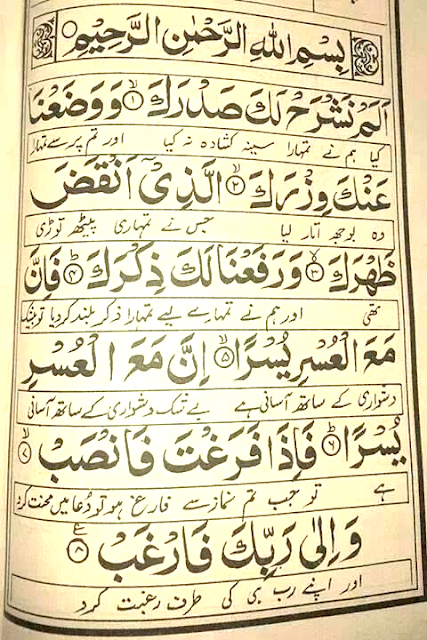 بِسْمِ اللهِ الرَّحْمٰنِ الرَّحِيْمِ
اَلَمْ نَشْرَحْ لَكَ صَدْرَكَ ۙ﴿۱﴾ وَوَضَعْنَا
کیا ہم نے تمہارا سینہ کشادہ نہ کیا اور تم پر سے تمہارا
عَنْكَ وِزْرَكَ ۙ﴿۲﴾ الَّذِيْۤ اَنْقَضَ
وہ بوجھ اتار لیا جس نے تمہاری پیٹھ توڑی
ظَهْرَكَ ۙ﴿۳﴾ وَرَفَعْنَا لَكَ ذِكْرَكَ ؕ﴿۴﴾ فَاِنَّ
تھی اور ہم نے تمہارے لیے تمہارا ذکر بلند کر دیا تو بیشک
مَعَ الْعُسْرِ يُسْرًا ۙ﴿۵﴾ اِنَّ مَعَ الْعُسْرِ
دشواری کے ساتھ آسانی ہے بے شک دشواری کے ساتھ آسانی
يُسْرًا ؕ﴿۶﴾ فَاِذَا فَرَغْتَ فَانْصَبْ ۙ﴿۷﴾
ہے تو جب تم نماز سے فارغ ہو تو دُعا میں محنت کرو
وَاِلٰى رَبِّكَ فَارْغَبْ ﴿۸﴾
اور اپنے رب ہی کی طرف رغبت کرو